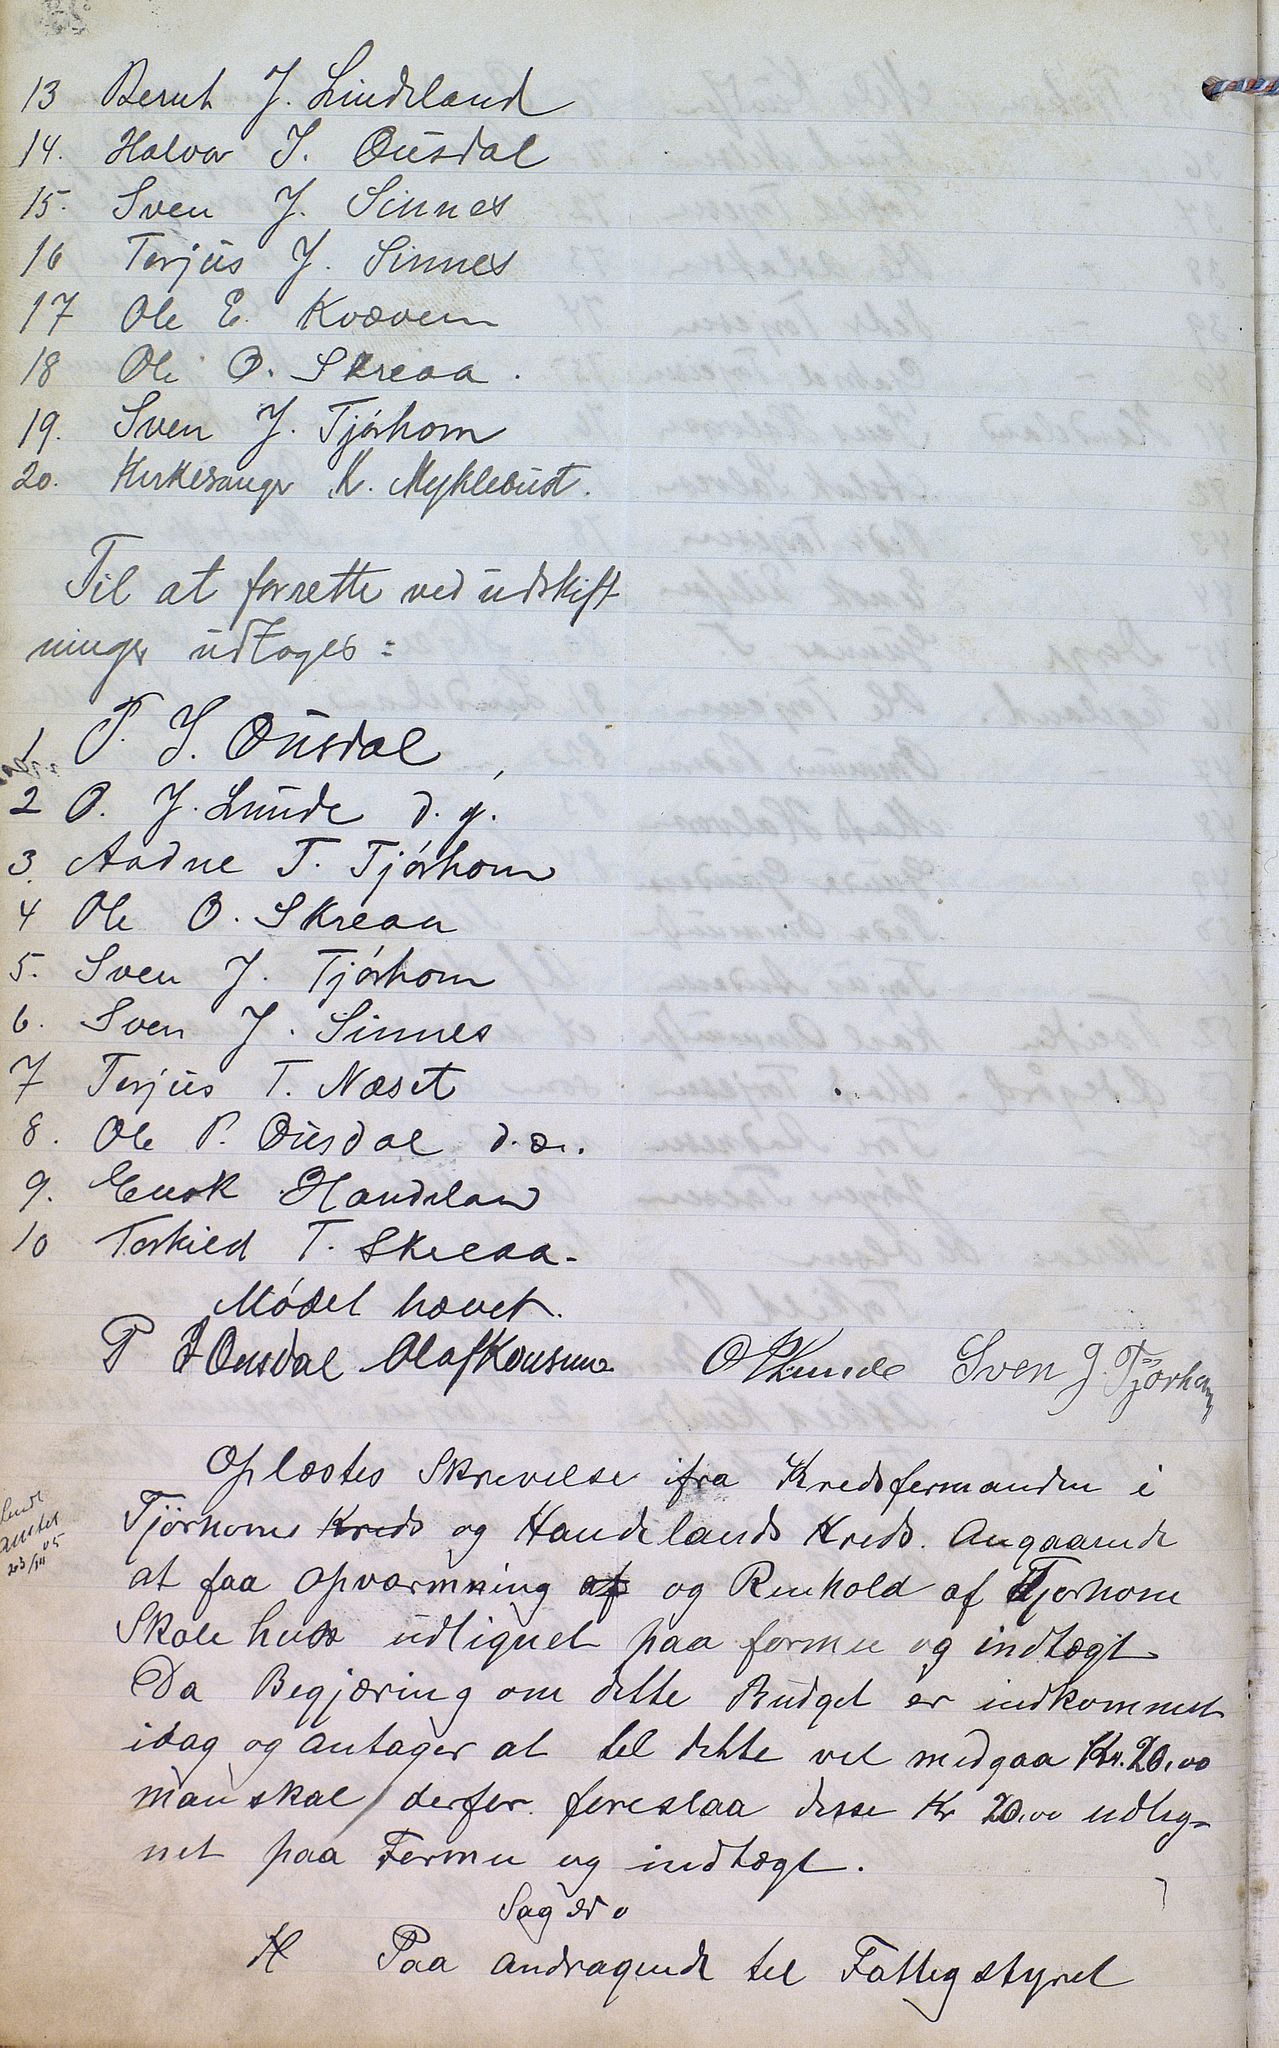 13 Bernt J. Lindeland
14. Halvor I. Ousdal
15. Sven J. Sinnes
16 Terjus J. Sinnes
17 Ole E. Kvæven
18 Ole O. Skreaa.
19. Sven J. Tjórhom
20. Kirkesanger K. Myklebust.
Til at forrette ved udskift
ninger udtoges:
1 P. I. Ousdal
2 O. J. Lunde d. y.
3. Aadne T. Tjórhom
4 Ole O. Skreaa
5. Sven J. Tjórhom
6. Sven J. Sinnes
7 Terjus T. Næset
8. Ole P. Ousdal d.æ.
9. Enok Handeland
10 Torkild T. Skreaa.
Módet hævet.
P I Ousdal Olaf Konsmo O Lunde Sven J. Tjørhom
Oplæstes Skrivelse ifra Kredsformanden i
Tjörhoms Kreds og Handelands Kreds. Angaaende
at faa opvarmning af og Renhold af Tjorhom
Skole huss udlignet paa formue og indtægt
Da Begjæring om dette Budget er indkommet
idag og antager at til dette vel medgaa Kr. 20,00
man skal derfor foreslaa disse Kr 20,00 udlig-
net paa Formue og indtægt.
Sendt
anstet
Sag
Paa andragende til Fattigstyret